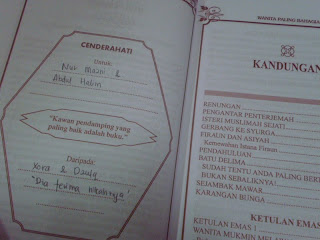 CENDERAHATI
Untuk:
Nur Maini &
Abdul Halim
"Kawan pendamping yang
paling baik adalah buku."
Daripada:
Xora & Dauly
"Dia terima nikahnya"
WANITA PALING BAHAGIA
KANDUNGAN
RENUNGAN
PENGANTAR PENTERJEMAH
ISTERI MUSLIMAH SEJATI
GERBANG KE SYURGA
FIRAUN DAN ASIYAH
Keteguhan Isteri Firaun
PENDAHULUAN
BATU DELIMA
SUDAH TENTU ANDA PALING BER
BUKAN SEBALIKNYA!
SEJAMBAK MAWAR
KARANGAN BUNGA
KETULAN EMAS
KETULAN EMAS 1
WANITA MUKMIN